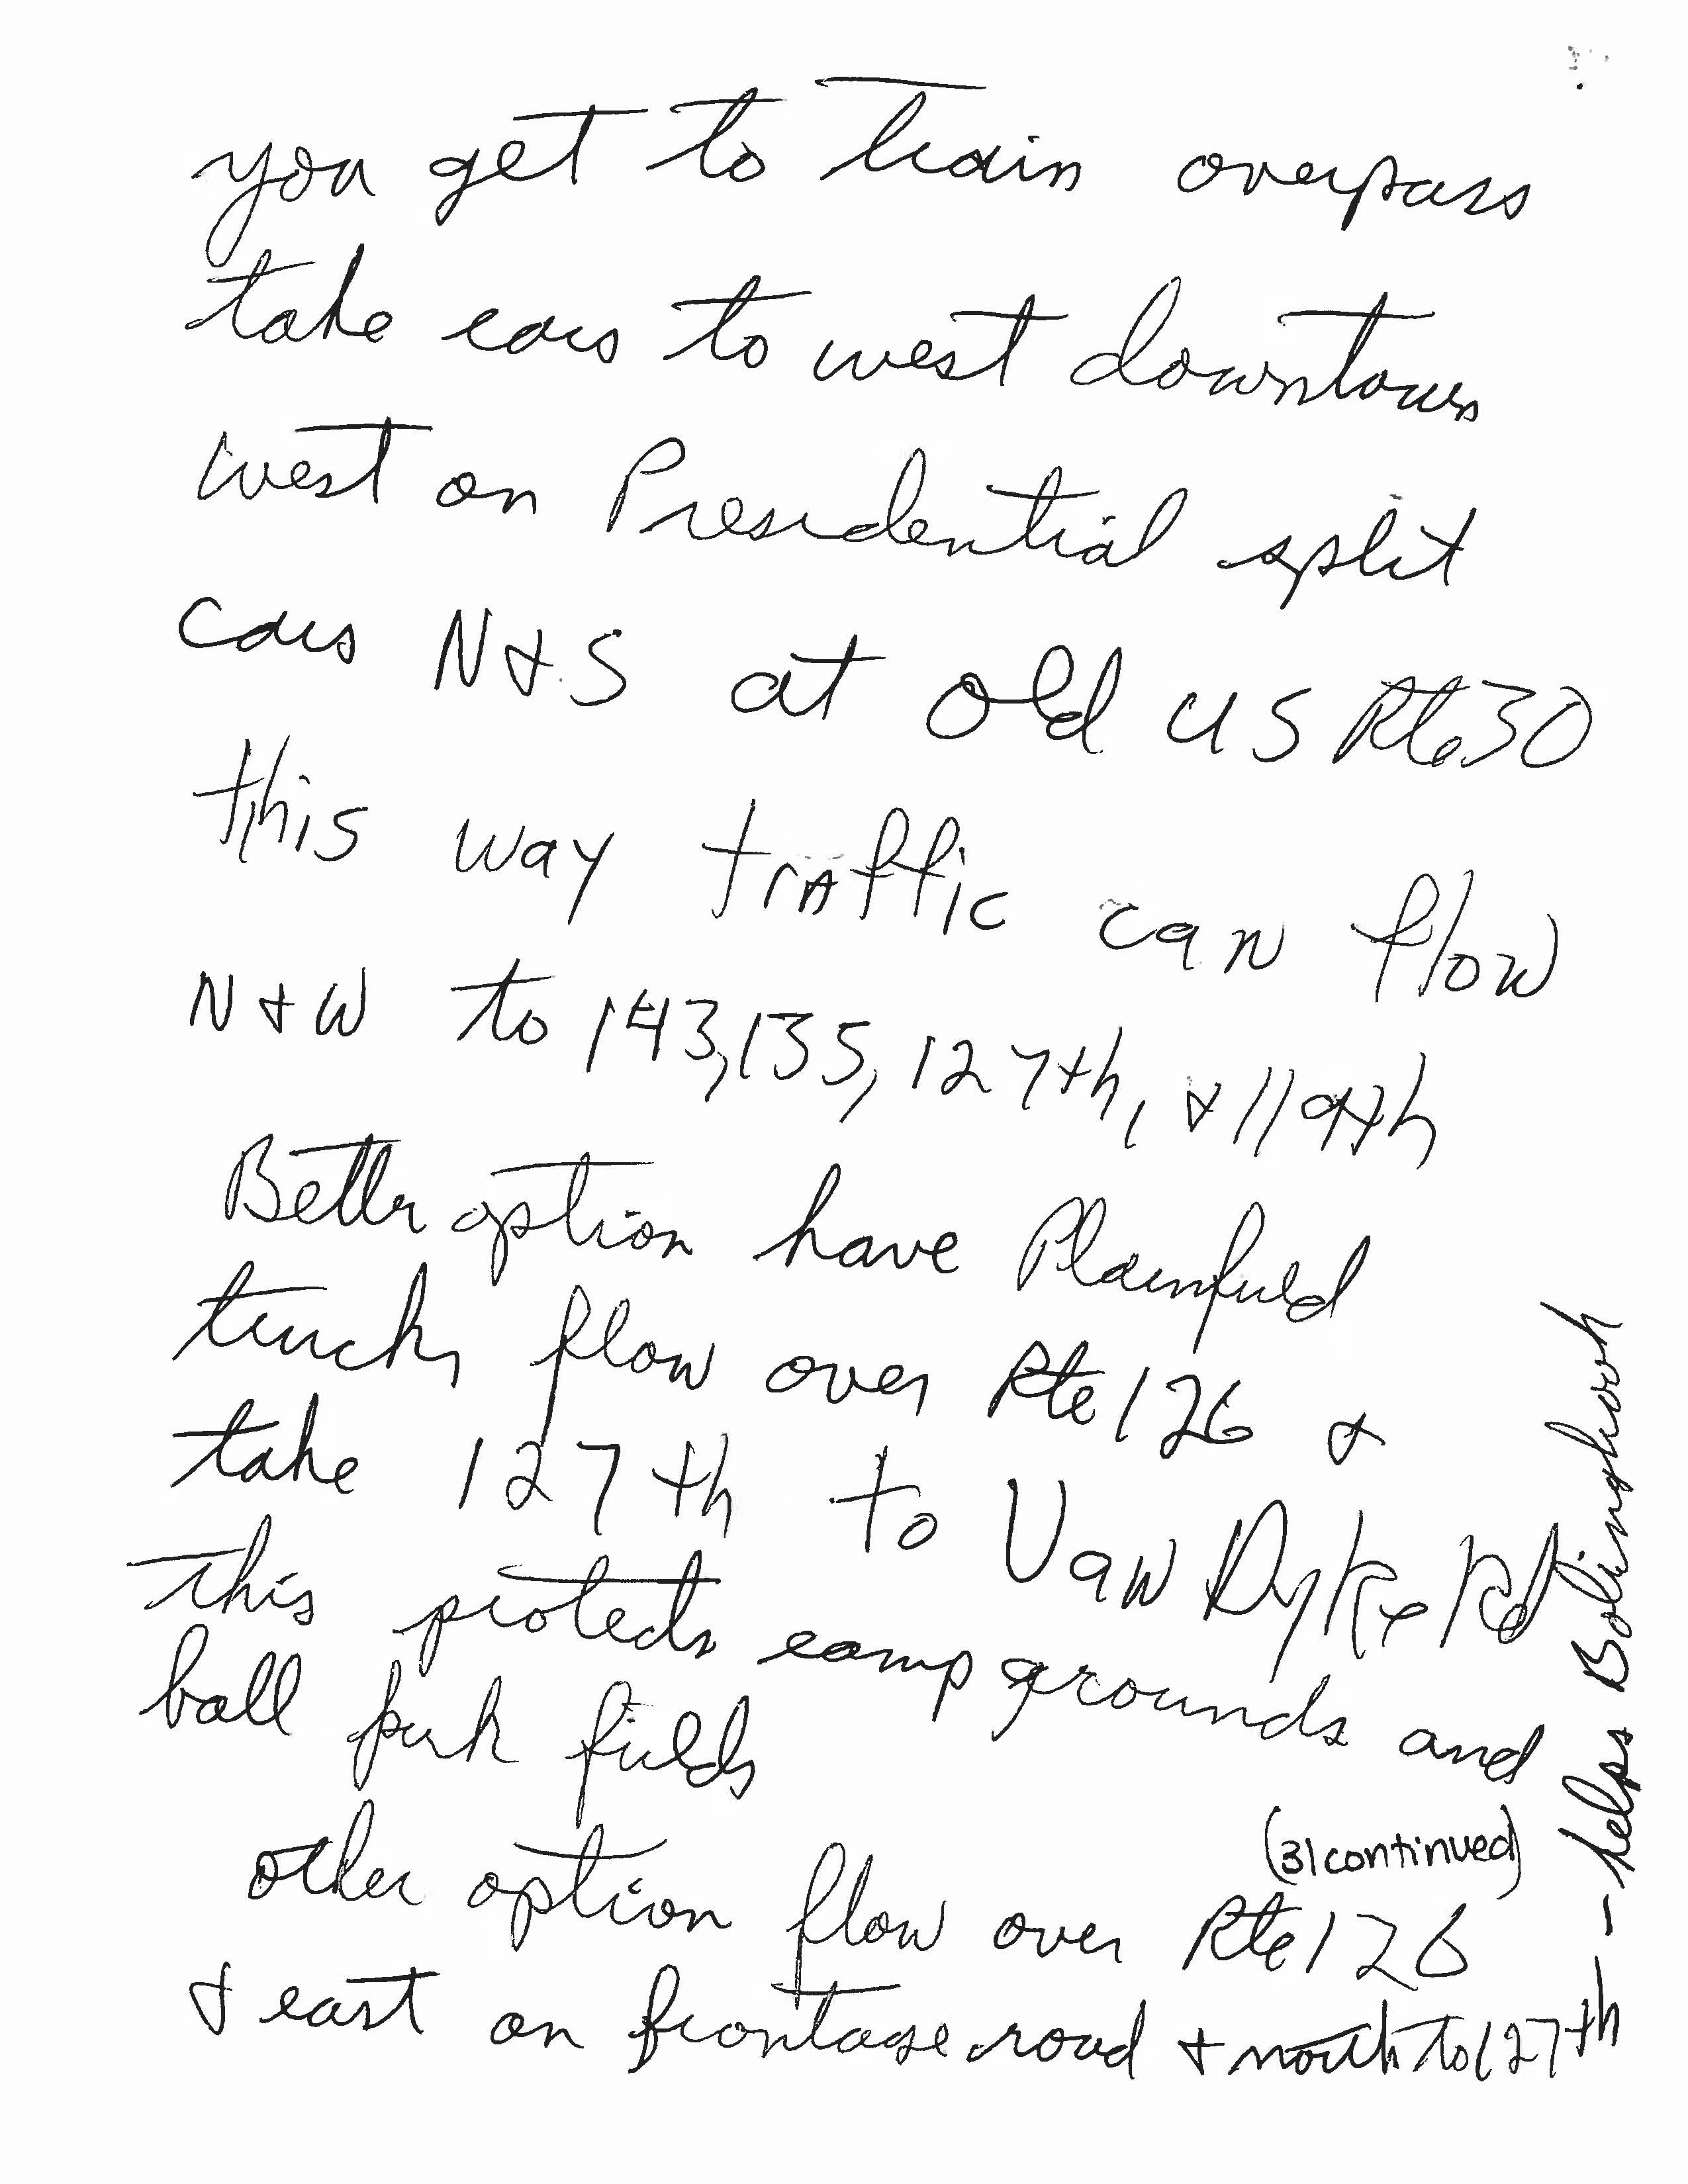 you get to train overpass
take cars to west downtown
west on Presidential split
cars N & S at old US Rte 30
this way traffic can flow
N & W to 143, 135, 127th, & 119th
Better option have Plainfield
trucks flow over Rte 126 &
take 127th to Van Dyke Rd
this protects camp grounds and
ball park fields
(31 continued)
other option flow over Rte 126
& east on frontage road & north to 127th
- helps Bolingbrook